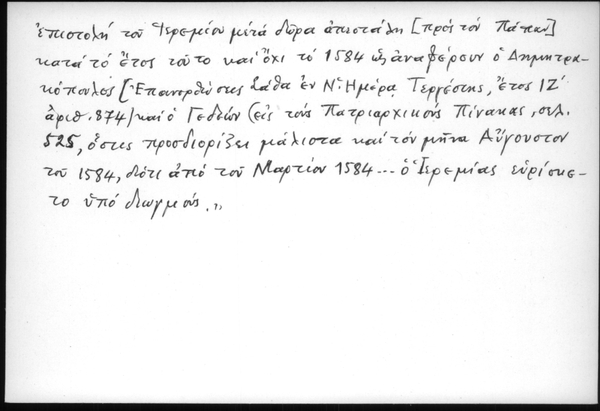 ἐπιστολή τοῦ Ἱερεμίου μετά δῶρα ἀπεστάλη [πρός τόν Πάπαν]
κατά τό ἔτος τοῦτο καί ὄχι τό 1584 ὡς ἀναφέρουν ὁ Δημητρα-
κόπουλος [Ἐπανορθώσεις Σάθα ἐν Ν. Ἡμέρᾳ Τεργέστης, ἔτος ΙΖ´
ἀριθ. 874) καί ὁ Γεδεών (εἰς τούς Πατριαρχικούς Πίνακας, σελ.
525, ὅστις προσδιορίζει μάλιστα καί τόν μῆνα Αὔγουστον
τοῦ 1584, διότι ἀπό τοῦ Μαρτίου 1584... ὁ Ἱερεμίας εὑρίσκε-
το ὑπό διωγμούς.»